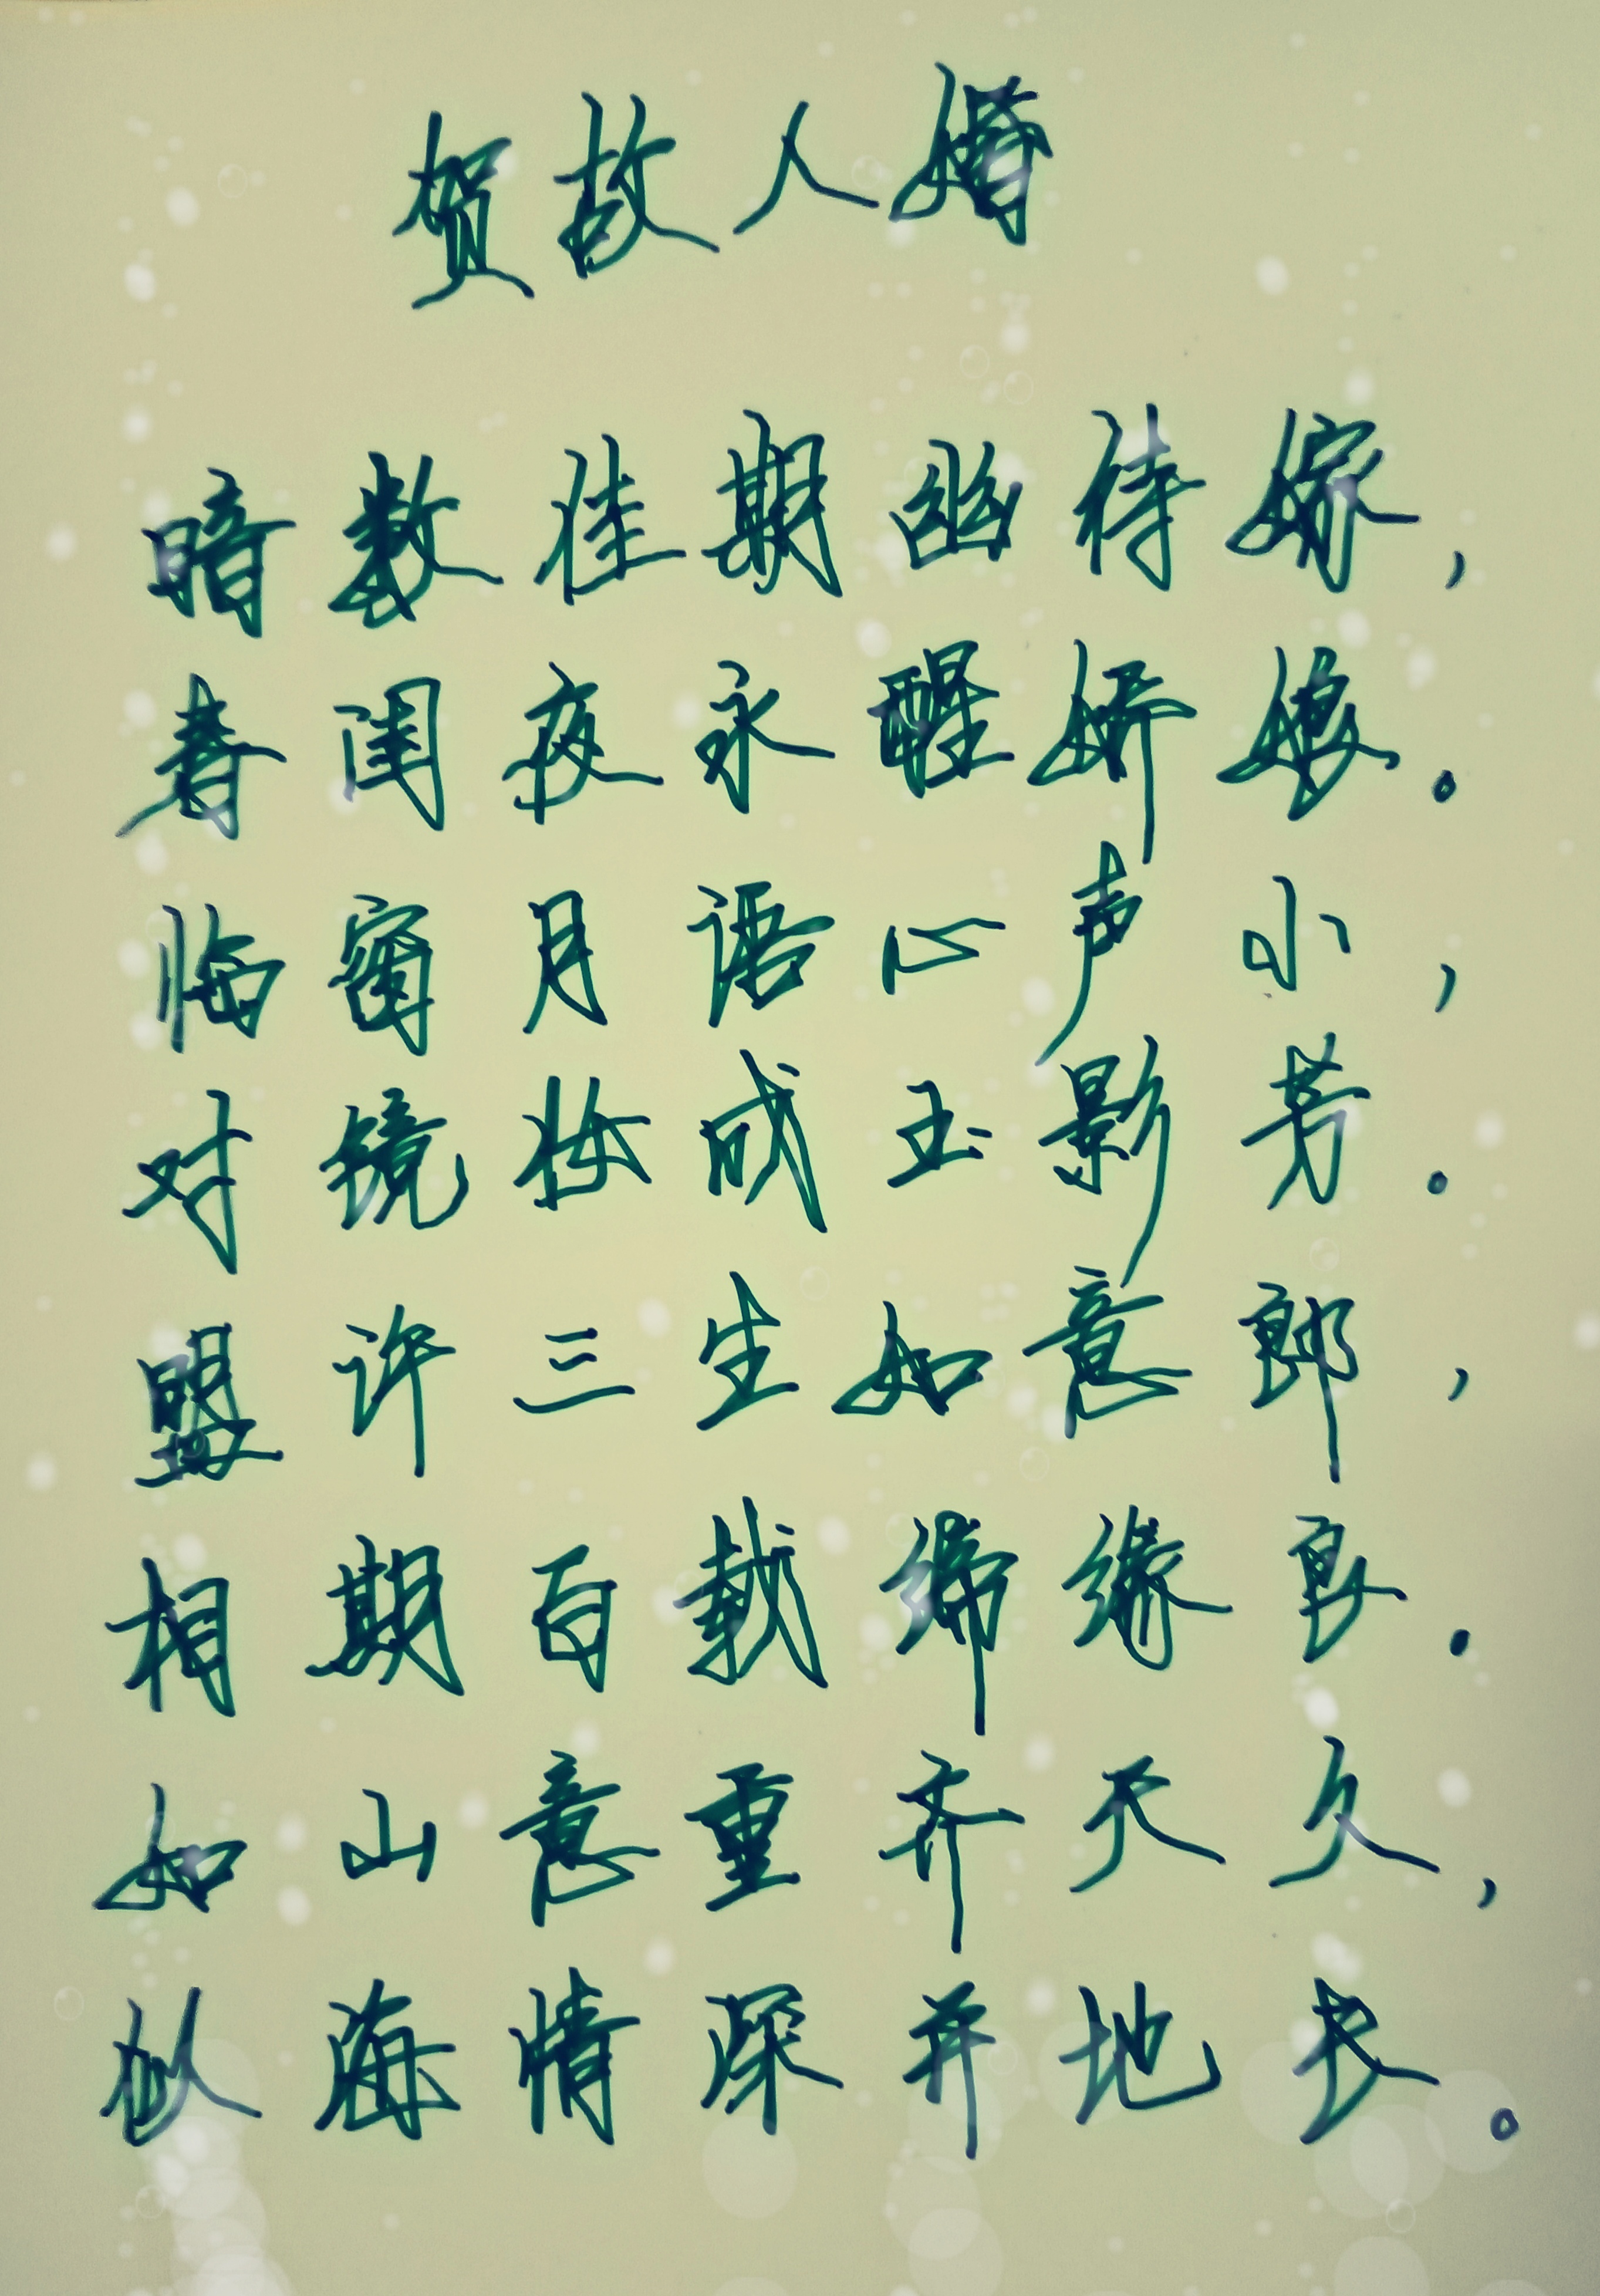 贺故人婚
暗数佳期幽待嫁，
春闺夜永醒娇娘。
临窗月语心声小，
对镜妆成玉影芳。
盟许三生如意郎，
相期百载缔缘良。
如山意重齐天久，
似海情深并地长。